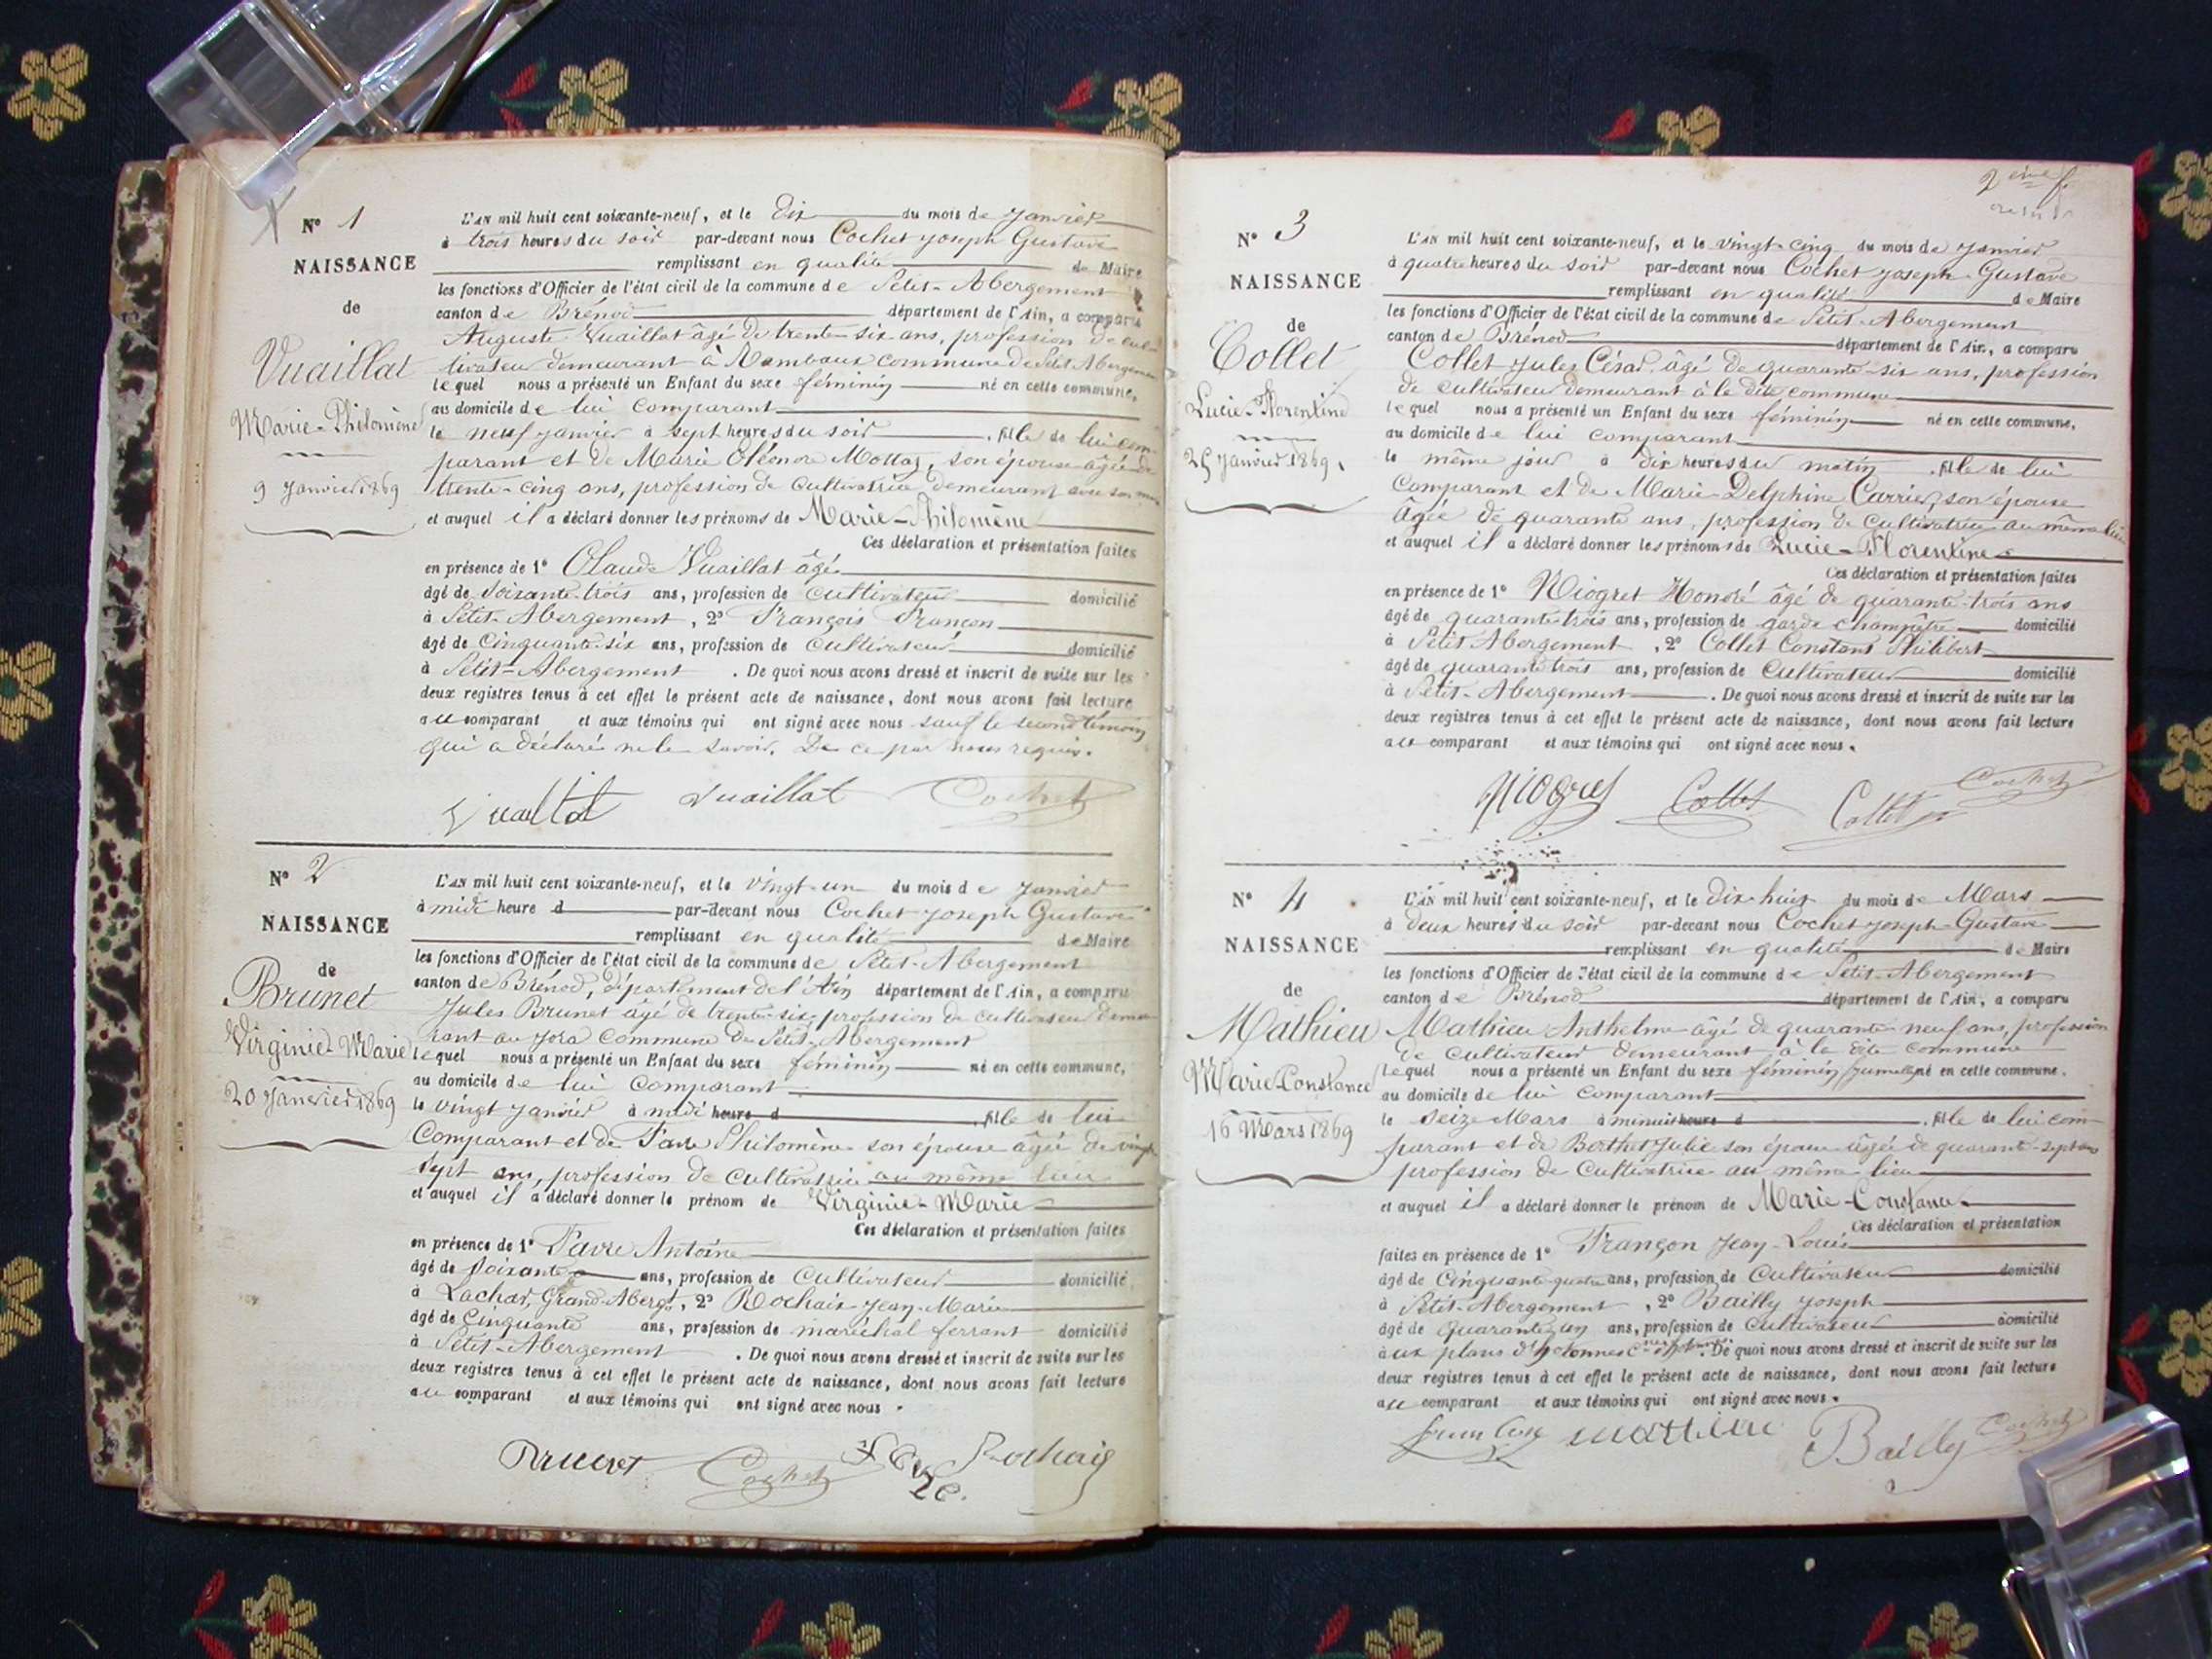 N° 1
NAISSANCE
de
Vuaillat
Marie-Philomène
9 Janvier 1869
L'AN mil huit cent soixante-neuf, et le dix du mois de Janvier
à trois heures du soir par-devant nous Cochet Joseph Gustave
remplissant en qualité de Maire
les fonctions d'Officier de l'état civil de la commune de Petit-Abergement
canton de Brénod département de l'Ain, a comparu
Auguste Vuaillat âgé de trente-six ans, profession de cul-
tivateur demeurant à commune de Petit Abergement
lequel nous a présenté un Enfant du sexe féminin né en cette commune,
au domicile de lui comparant
le neuf janvier à sept heures du soir . fille de lui com-
parant et de Marie Eléonore Mottaz, son épouse âgée de
trente-cinq ans, profession de cultivatrice demeurant avec son mari
et auquel il a déclaré donner les prénoms de Marie-Philomène
Ces déclaration et présentation faites
en présence de 1° Claude Vuaillat âgé
âgé de soixante-trois ans, profession de cultivateur domicilié
à Petit-Abergement, 2° François Françon
âgé de cinquante-six ans, profession de cultivateur domicilié
à Petit-Abergement . De quoi nous avons dressé et inscrit de suite sur les
deux registres tenus à cet effet le présent acte de naissance, dont nous avons fait lecture
au comparant et aux témoins qui ont signé avec nous sauf le second témoin
qui a déclaré ne le savoir. De ce par nous requis.
Vuaillat Vuaillat Cochet
N° 2
NAISSANCE
de
Brunet
Virginie-Marie
20 Janvier 1869
L'AN mil huit cent soixante-neuf, et le vingt-un du mois de Janvier
à midi heure d par-devant nous Cochet Joseph Gustave
remplissant en qualité de Maire
les fonctions d'Officier de l'état civil de la commune de Petit-Abergement
canton de Brénod, département de l'Ain département de l'Ain, a comparu
Jules Brunet âgé de trente-six, profession de cultivateur demeu-
rant au Jora commune de Petit-Abergement
lequel nous a présenté un Enfant du sexe féminin né en cette commune,
au domicile de lui comparant
le vingt janvier à midi heure d . fille de lui
comparant et de Favre Philomène son épouse âgée de vingt
sept ans, profession de cultivatrice au même lieu
et auquel il a déclaré donner le prénom de Virginie-Marie
Ces déclaration et présentation faites
en présence de 1° Favre Antoine
âgé de soixante ans, profession de cultivateur domicilié
à Lachar, Grand-Abergt, 2° Rochaix Jean-Marie
âgé de cinquante ans, profession de maréchal ferrant domicilié
à Petit-Abergement . De quoi nous avons dressé et inscrit de suite sur les
deux registres tenus à cet effet le présent acte de naissance, dont nous avons fait lecture
au comparant et aux témoins qui ont signé avec nous .
Brunet Cochet Favre Rochaix
2ème f.
N° 3
NAISSANCE
de
Collet
Lucie-Florentine
25 Janvier 1869.
L'AN mil huit cent soixante-neuf, et le vingt-cinq du mois de Janvier
à quatre heures du soir par-devant nous Cochet Joseph-Gustave
remplissant en qualité de Maire
les fonctions d'Officier de l'état civil de la commune de Petit-Abergement
canton de Brénod département de l'Ain, a comparu
Collet Jules César, âgé de quarante-six ans, profession
de cultivateur demeurant à la dite commune
lequel nous a présenté un Enfant du sexe féminin né en cette commune,
au domicile de lui comparant
le même jour à dix heures du matin . fille de lui
comparant et de Marie Delphine Carrier, son épouse
âgée de quarante ans, profession de cultivatrice au même lieu
et auquel il a déclaré donner les prénoms de Lucie-Florentine
Ces déclaration et présentation faites
en présence de 1° Niogret Honoré âgé de quarante-trois ans
âgé de quarante-trois ans, profession de garde champêtre domicilié
à Petit Abergement, 2° Collet Constant Philibert
âgé de quarante trois ans, profession de cultivateur domicilié
à Petit-Abergement . De quoi nous avons dressé et inscrit de suite sur les
deux registres tenus à cet effet le présent acte de naissance, dont nous avons fait lecture
au comparant et aux témoins qui ont signé avec nous.
Niogret Collet Collet Cochet
N° 4
NAISSANCE
de
Mathieu
Marie-Constance
16 Mars 1869
L'AN mil huit cent soixante-neuf, et le dix huit du mois de Mars
à deux heures du soir par-devant nous Cochet Joseph-Gustave
remplissant en qualité de Maire
les fonctions d'Officier de l'état civil de la commune de Petit-Abergement
canton de Brénod département de l'Ain, a comparu
Mathieu Anthelme âgé de quarante-neuf ans, profession
de cultivateur demeurant à la dite commune
lequel nous a présenté un Enfant du sexe féminin né en cette commune,
au domicile de lui comparant
le seize Mars à minuit heure d . fille de lui com-
parant et de Berthet Julie son épouse âgée de quarante-sept ans
profession de cultivatrice au même lieu
et auquel il a déclaré donner le prénom de Marie-Constance
Ces déclaration et présentation
faites en présence de 1° Françon Jean-Louis
âgé de cinquante-quatre ans, profession de cultivateur domicilié
à Petit-Abergement, 2° Bailly Joseph
âgé de quarante un ans, profession de cultivateur domicilié
aux plans . De quoi nous avons dressé et inscrit de suite sur les
deux registres tenus à cet effet le présent acte de naissance, dont nous avons fait lecture
au comparant et aux témoins qui ont signé avec nous.
Françon Mathieu Bailly Cochet